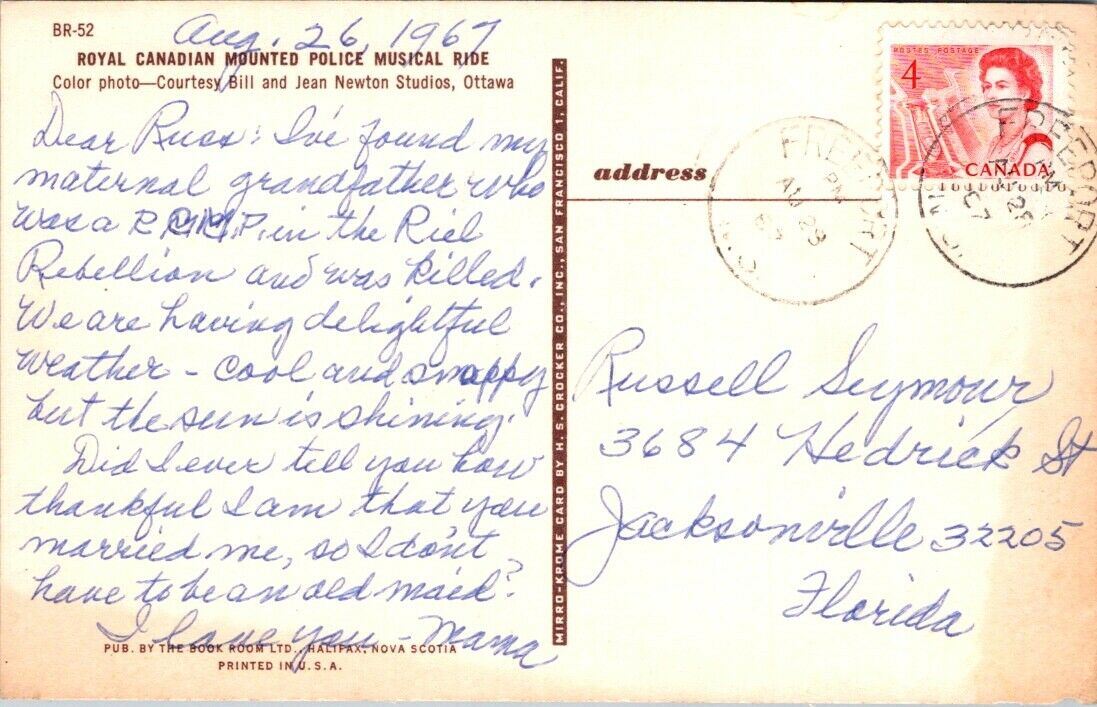 BR-52
Aug. 26, 1967
ROYAL CANADIAN MOUNTED POLICE MUSICAL RIDE
Color photo—Courtesy Bill and Jean Newton Studios, Ottawa
Dear Russ: I've found my
maternal grandfather who
was a R.C.M.P. in the Riel
Rebellion and was killed.
We are having delightful
weather - cool and snappy
but the sun is shining.
Did I ever tell you how
thankful I am that you
married me, so I don't
have to be an old maid?
I love you - Mama
PUB. BY THE BOOK ROOM LTD., HALIFAX, NOVA SCOTIA
PRINTED IN U.S.A.
MIRRO-KROME CARD BY H. S. CROCKER CO., INC., SAN FRANCISCO 1, CALIF.
address
POSTES POSTAGE
4
CANADA
FREEPORT
PM
28
67
FREEPORT
PM
28
67
Russell Seymour
3684 Hedrick St
Jacksonville 32205
Florida